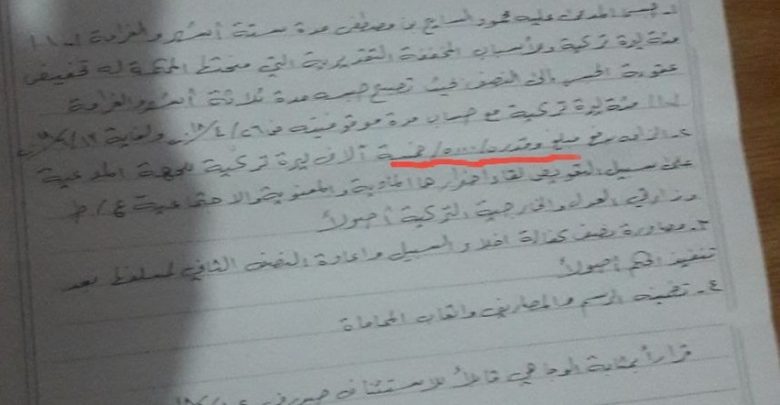 ١- حبس المدعى عليه محمود السايح بن مصطفى مدة ستة أشهر والغرامة /١٠٠/
مئة ليرة تركية وللأسباب المخففة التقديرية التي منحتها المحكمة له تخفيض
عقوبة الحبس إلى النصف حيث تصبح حبسه مدة ثلاثة أشهر والغرامة
/١٠٠/ مئة ليرة تركية مع حساب مدة موقوفيته من ٢٦/٤/ ولغاية
٢- الزامه بدفع مبلغ وقدره /٥٠٠٠/ خمسة آلاف ليرة تركية للجهة المدعية
على سبيل التعويض لقاء أضرارها المادية والمعنوية والاجتماعية
وزارتي العدل والخارجية التركية أصولاً
٣- مصادرة نصف كفالة اخلاء السبيل واعادة النصف الثاني لمسلفها بعد
تنفيذ الحكم أصولاً
٤- تضمينه الرسم والمصاريف واتعاب المحاماة
قراراً بمثابة الوجاهي قابلاً للاستئناف صدر في